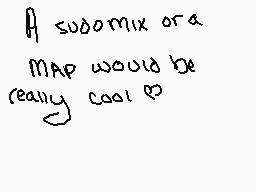 A sudomix or a
MAP would be
really cool ♡